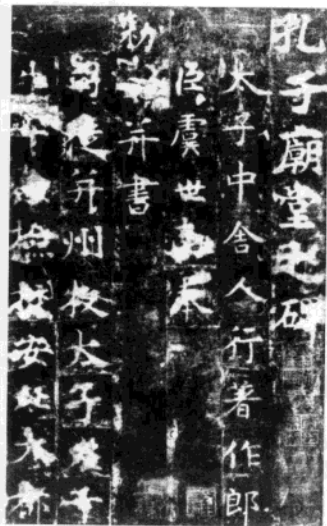 孔子廟堂之碑
太子中舍人行著作郎
臣虞世南奉
勑撰并書
司徒并州牧太子左千
牛率兼檢校安北大都